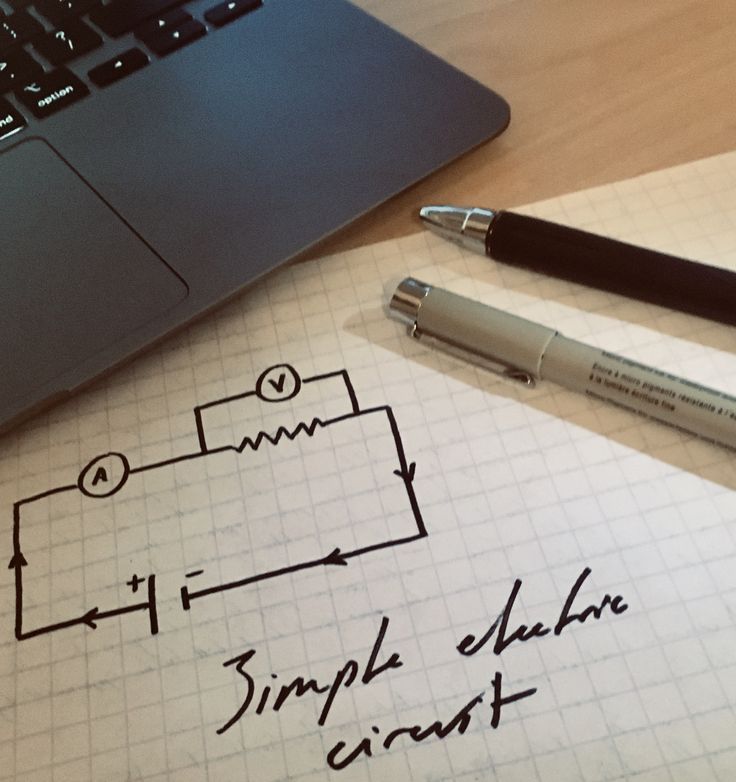 option
Encre à micro pigments résistante à l'
à la lumière écriture fine
V
A
+ -
Simple electric
circuit